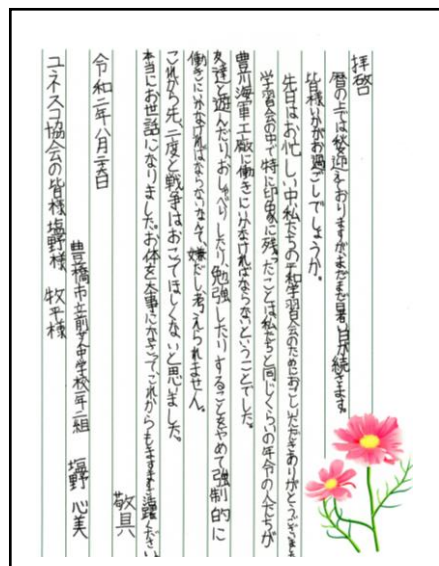 拝啓
暦の上では秋を迎えておりますが、まだまだ暑い日が続きます。
皆様いかがお過ごしでしょうか。
先日はお忙しい中私たちの平和学習会のためにおこしいただきありがとうございました
学習会の中で特に印象に残ったことは私たちと同じくらいの年令の人たちが
豊川海軍工廠に働きにいかなければならないということでした。
友達と遊んだり、おしゃべりしたり、勉強したりすることをやめて強制的に
働きにいかなければならないなんて、嫌だし考えられません。
これから先、二度と戦争はおこってほしくないと思いました。
本当にお世話になりました。お体を大事になさって、これからもますますご活躍ください
敬具
令和二年八月二六日
豊橋市立前芝中学校一年二組 塩野 心美
ユネスコ協会の皆様 塩野様 牧平様